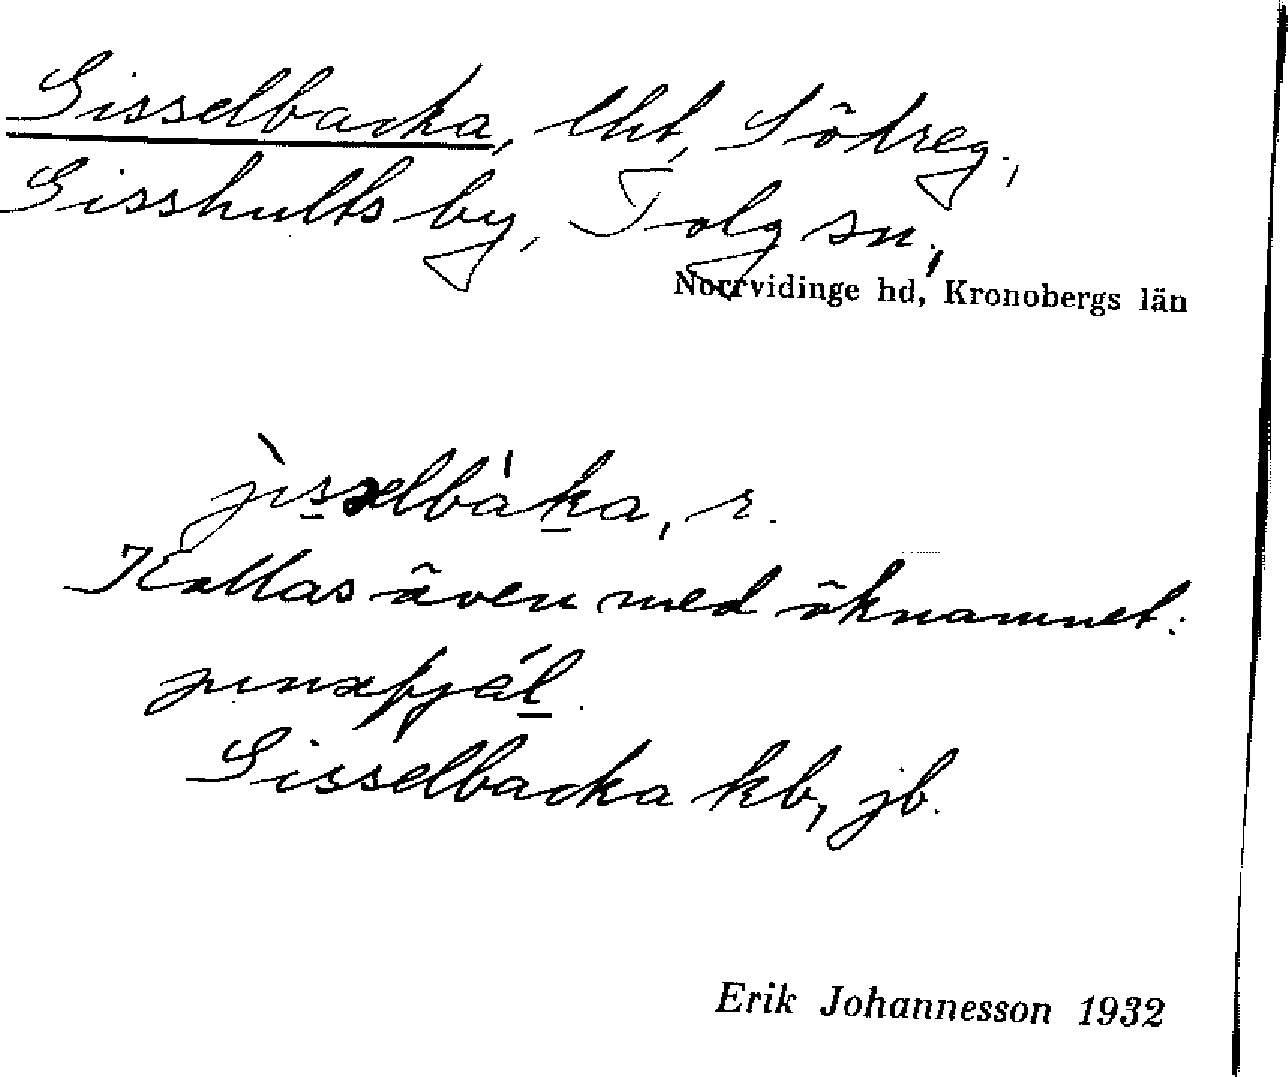 Gisselbacka, lht, Södreg.,
Gisshults by, Tolg sn,
Norrvidinge hd, Kronobergs län
jìsselbáka, r.
Kallas även med öknamnet:
Gisselbacka kb, jb.
Erik Johannesson 1932